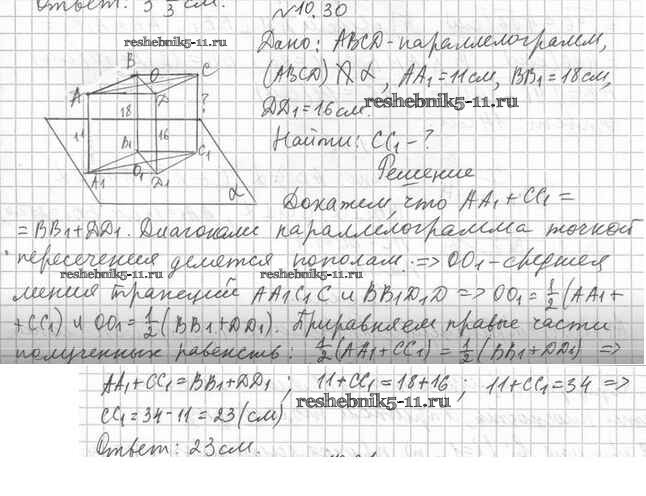 Ответ: 5 1/3 см.
№10.30
reshebnik5-11.ru
Дано: ABCD - параллелограмм,
(ABCD) ∦ α, AA1 = 11 см, BB1 = 18 см,
DD1 = 16 см.
reshebnik5-11.ru
Найти: CC1 - ?
Решение
B O C
A D ?
18
11 B1 16 C1
O1
A1 D1 α
reshebnik5-11.ru
Докажем, что AA1 + CC1 =
= BB1 + DD1. Диагонали параллелограмма точкой
пересечения делятся пополам. => OO1 - средняя
reshebnik5-11.ru reshebnik5-11.ru
линия трапеций AA1C1C и BB1D1D => OO1 = 1/2 (AA1 +
+ CC1) и OO1 = 1/2 (BB1 + DD1). Приравняем правые части
полученных равенств: 1/2 (AA1 + CC1) = 1/2 (BB1 + DD1) =>
AA1 + CC1 = BB1 + DD1; 11 + CC1 = 18 + 16; 11 + CC1 = 34 =>
CC1 = 34 - 11 = 23 (см)
reshebnik5-11.ru
Ответ: 23 см.